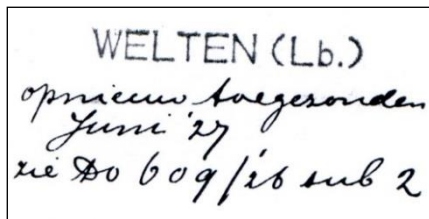 WELTEN (Lb.)
opnieuw toegezonden
Juni '27
zie Do 609/'26 sub 2